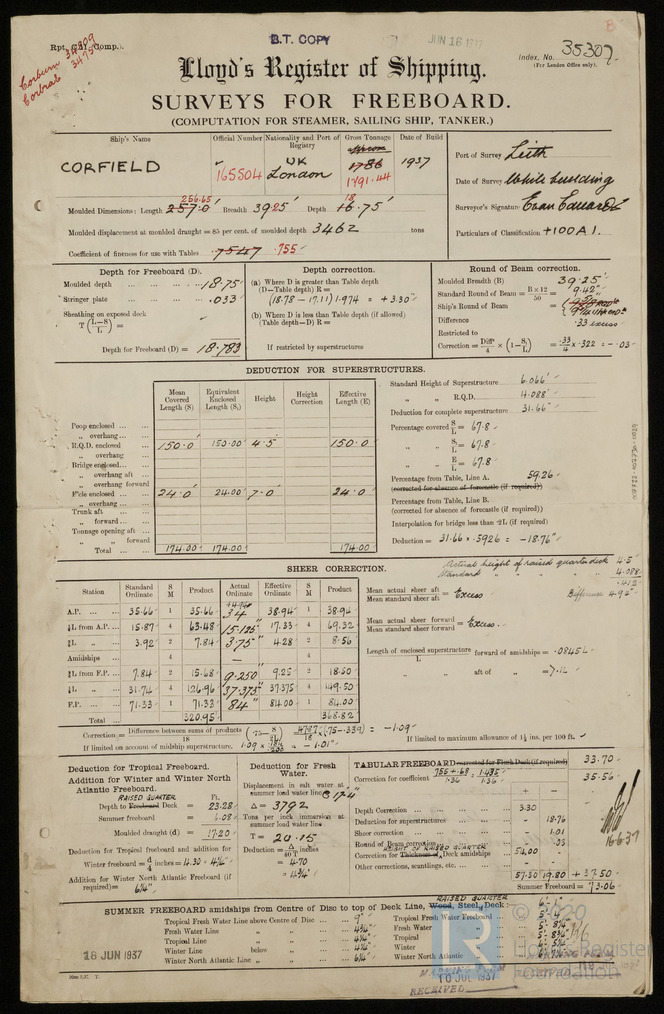 B.T. COPY
JUN 16 1937
Rpt. C11 (Comp.).
Corburn 34809
Corbrae 3475
Index. No. 35307.
(For London Office only).
Lloyd's Register of Shipping.
SURVEYS FOR FREEBOARD.
(COMPUTATION FOR STEAMER, SAILING SHIP, TANKER.)
Ship's Name Official Number Nationality and Port of Registry Gross Tonnage Date of Build
CORFIELD 165504 UK London 1786 1791.44 1937
Port of Survey Leith
Date of Survey While building
Surveyor's Signature Evan Edwards
Particulars of Classification +100A1.
Moulded Dimensions: Length 257.0' 256.65 Breadth 39.25' Depth 18.75'
Moulded displacement at moulded draught = 85 per cent. of moulded depth 3462 tons
Coefficient of fineness for use with Tables .7547 .755
Depth for Freeboard (D).
Moulded depth 18.75
Stringer plate .033
Sheathing on exposed deck
T (L−S/L) =
Depth for Freeboard (D) = 18.783
Depth correction.
(a) Where D is greater than Table depth
(D−Table depth) R =
(18.78 - 17.11) 1.974 = + 3.30"
(b) Where D is less than Table depth (if allowed)
(Table depth−D) R =
If restricted by superstructures
Round of Beam correction.
Moulded Breadth (B) 39.25'
Standard Round of Beam = B×12/50 = 9.42"
Ship's Round of Beam =
Difference .33 excess
Restricted to
Correction = Diffce/4 × (1−S1/L) = .33/4 × .322 = -.03
DEDUCTION FOR SUPERSTRUCTURES.
Mean Covered Length (S) Equivalent Enclosed Length (S1) Height Height Correction Effective Length (E)
Poop enclosed
„ overhang
R.Q.D. enclosed 150.0 150.00 4.5 150.0
„ overhang
Bridge enclosed
„ overhang aft
„ overhang forward
F'cle enclosed 24.0 24.00 7.0 24.0
„ overhang
Trunk aft
„ forward
Tonnage opening aft
„ „ forward
Total 174.00 174.00 174.00
Standard Height of Superstructure 6.066'
„ „ R.Q.D. 4.088'
Deduction for complete superstructure 31.66"
Percentage covered S/L = 67.8
„ „ S1/L = 67.8
„ „ E/L = 67.8
Percentage from Table, Line A. 59.26
(corrected for absence of forecastle (if required))
Percentage from Table, Line B.
(corrected for absence of forecastle (if required))
Interpolation for bridge less than ·2L (if required)
Deduction = 31.66 × .5926 = -18.76"
SHEER CORRECTION.
Actual height of raised quarter deck 4.5
Standard „ „ „ „ 4.088
.412
Difference 4.94"
Station Standard Ordinate S M Product Actual Ordinate Effective Ordinate S M Product
A.P. 35.66 1 35.66 38.94 1 38.94
⅙L from A.P. 15.87 4 63.48 15.125" 17.33 4 69.32
⅓L „ 3.92 2 7.84 3.75" 4.28 2 8.56
Amidships 4 – 4
⅓L from F.P. 7.84 2 15.68 9.250" 9.25 2 18.50
⅙L „ 31.74 4 126.96 37.375" 37.375 4 149.50
F.P. 71.33 1 71.33 84" 84.00 1 84.00
Total 320.95 368.82
Mean actual sheer aft / Mean standard sheer aft = Excess
Mean actual sheer forward / Mean standard sheer forward = Excess.
Length of enclosed superstructure / L forward of amidships = .0845L
„ „ aft of „ = 7.1L
Correction = Difference between sums of products / 18 (·75 − S/2L) = 47.87/18 (.75-.339) = -1.09
If limited on account of midship superstructure. = -1.01"
If limited to maximum allowance of 1½ ins. per 100 ft.
Deduction for Tropical Freeboard.
Addition for Winter and Winter North Atlantic Freeboard.
RAISED QUARTER Ft.
Depth to Freeboard Deck = 23.28
Summer freeboard = 6.08
Moulded draught (d) = 17.20
Deduction for Tropical freeboard and addition for
Winter freeboard = d/4 inches = 4.30 = 4¼"
Addition for Winter North Atlantic Freeboard (if required) = 6¼"
Deduction for Fresh Water.
Displacement in salt water at summer load water line
Δ = 3792
Tons per inch immersion at summer load water line
T = 20.15
Deduction = Δ/40T inches
= 4.70
= 4¾"
TABULAR FREEBOARD corrected for Flush Deck (if required) 33.70
Correction for coefficient .755+.68/1.36 = 1.435/1.36 35.56
+ −
Depth Correction 3.30
Deduction for superstructures 18.76
Sheer correction 1.01
Round of Beam correction .03
HEIGHT OF RAISED QUARTER
Correction for Thickness of Deck amidships 54.00
Other corrections, scantlings, etc.
57.30 19.80 +37.50
Summer Freeboard = 73.06
16.6.37
SUMMER FREEBOARD amidships from Centre of Disc to top of Deck Line, RAISED QUARTER Wood, Steel, Deck:
Tropical Fresh Water Line above Centre of Disc 9"
Fresh Water Line „ „ 4¾"
Tropical Line „ „ 4¼"
Winter Line below „ 4¼"
Winter North Atlantic Line „ „ 6¼"
Tropical Fresh Water Freeboard
Fresh Water „
Tropical „
Winter „
Winter North Atlantic „
16 JUN 1937
10 JUL 1937
RECEIVED
© 2020
LR
Lloyd's Register
Foundation